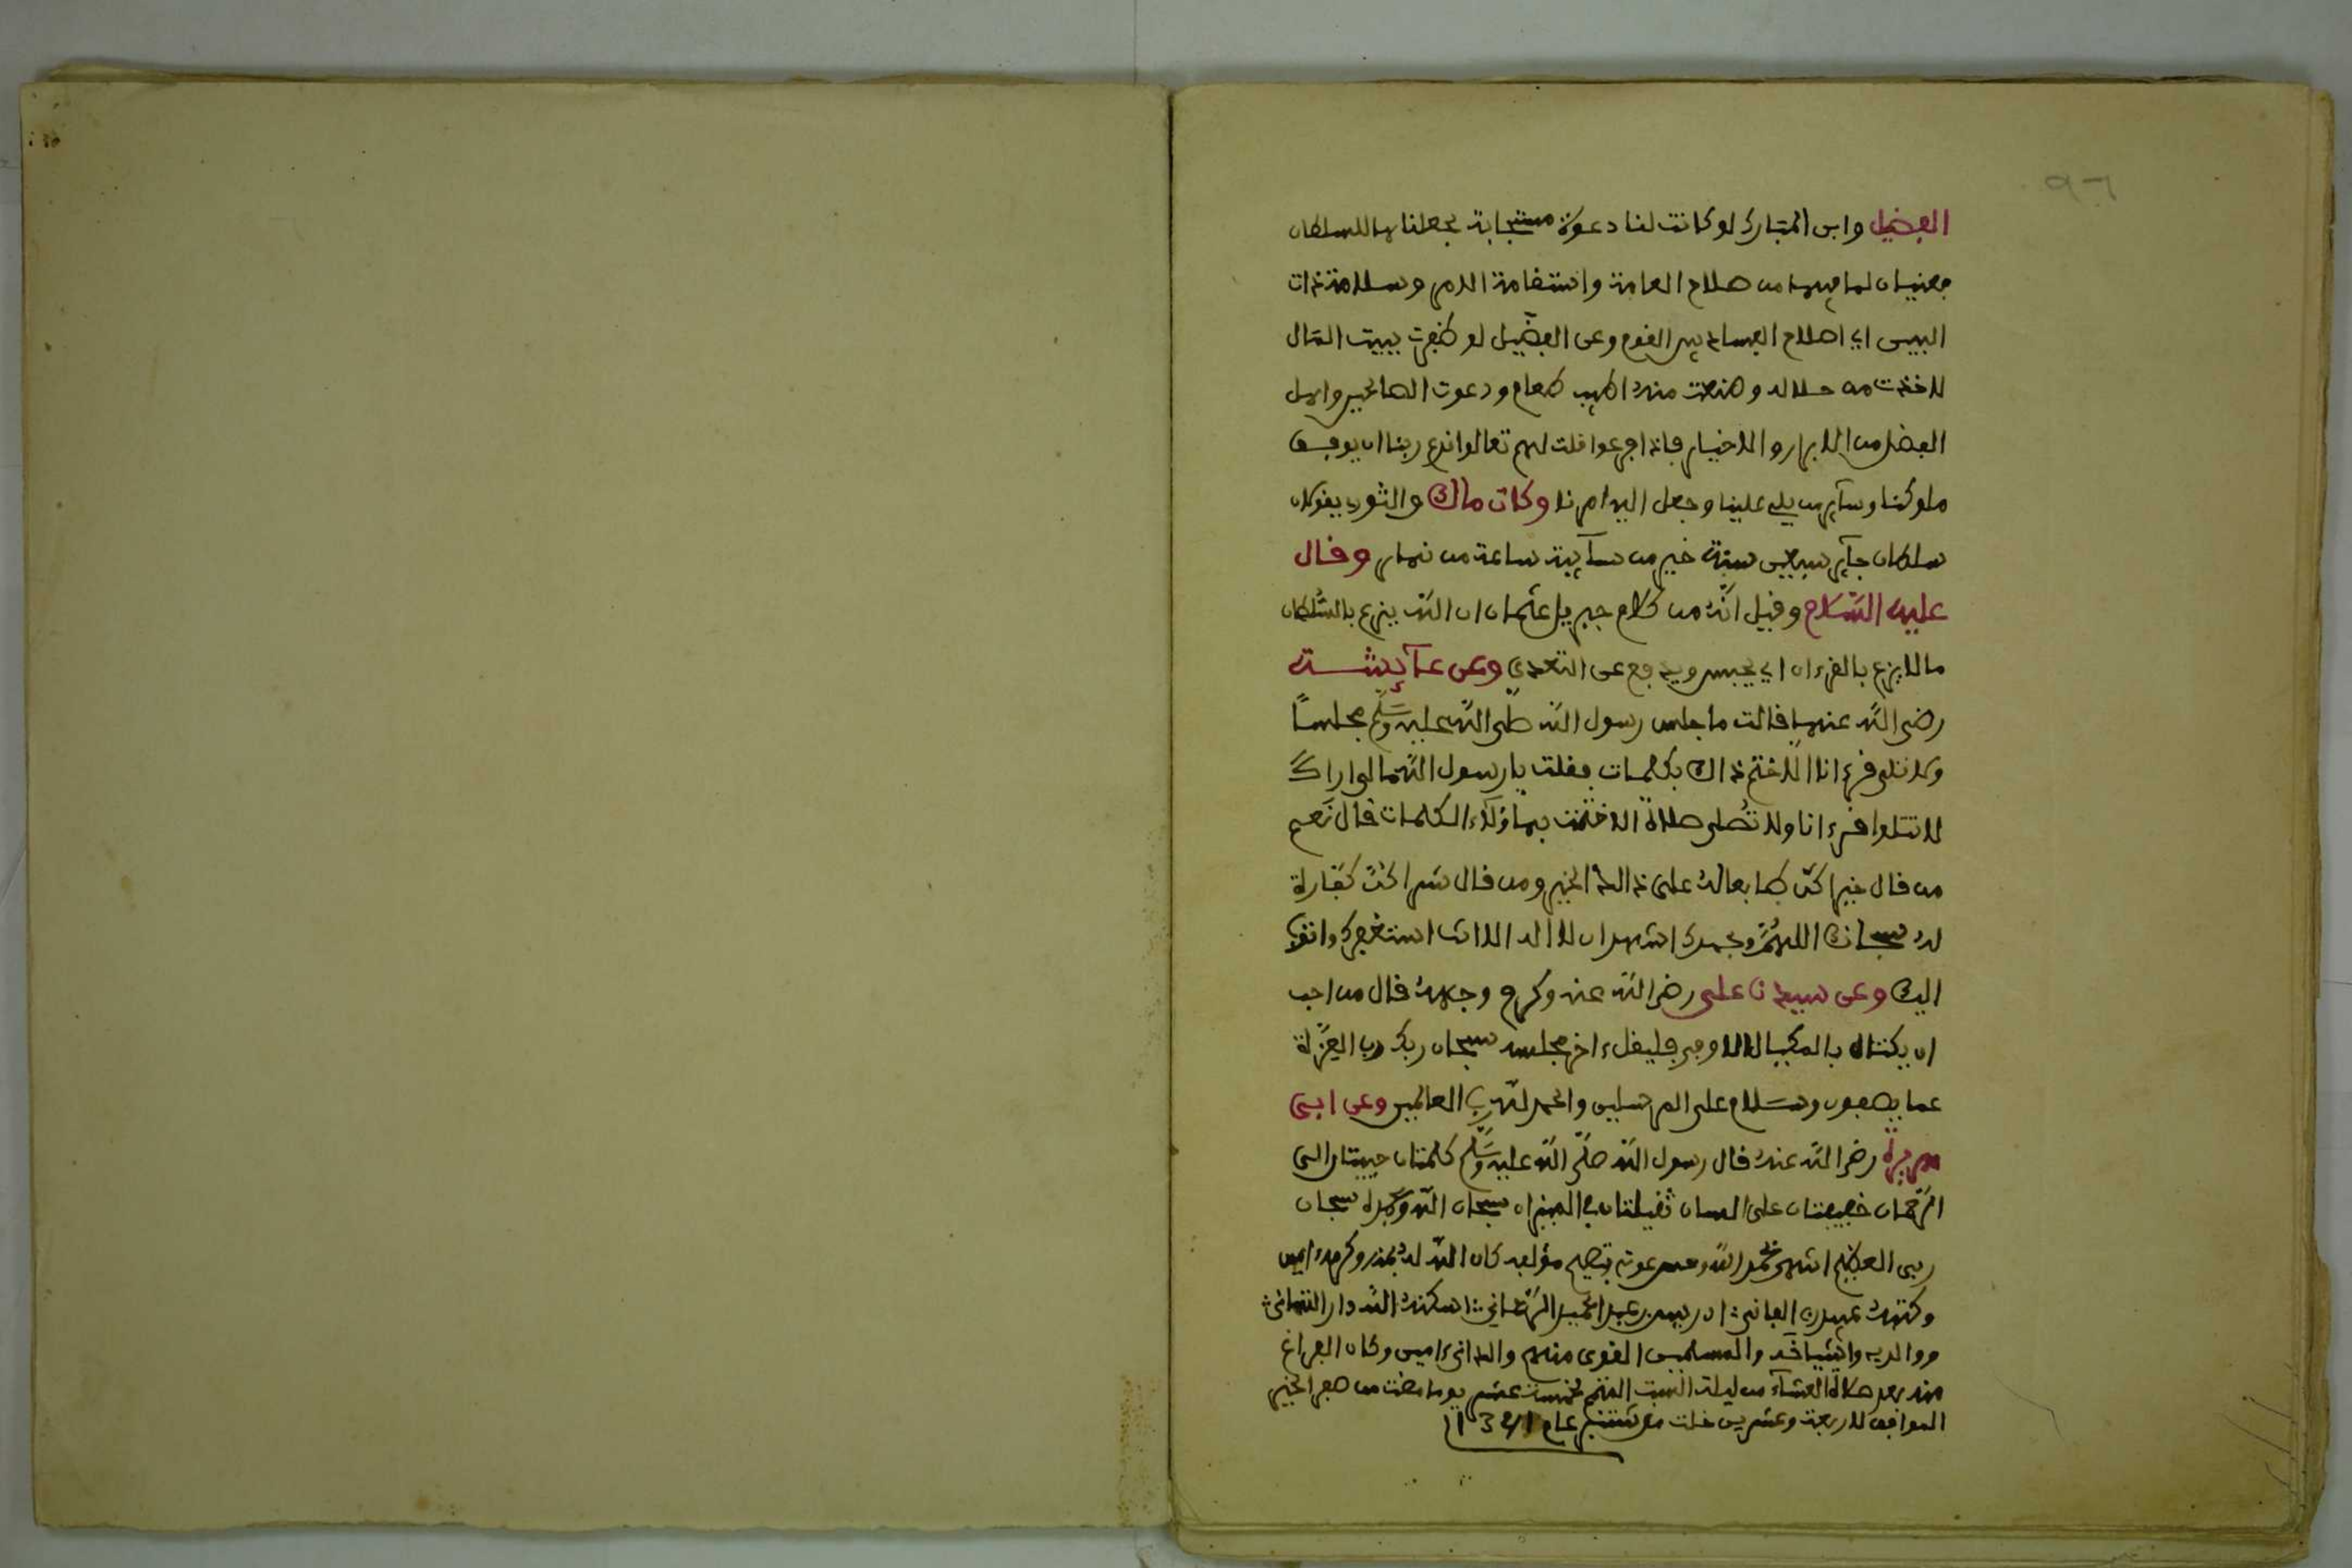 ٩٦
الفضيل وابن المبارك لو كانت لنا دعوة مستجابة لجعلناها للسلطان
فعنيان لما فيها من صلاح العامة واستقامة الامر وسلامة ذات
البين اي اصلاح الفساد بين القوم وعن الفضيل لو ظفرت ببيت المال
لاخذت من حلاله وصنعت منه اطيب طعام ودعوت الصالحين واهل
الفضل من الابرار والاخيار فاذا فرغوا قلت لهم تعالوا ندع ربنا ان يوفق
ملوكنا وسآير من يلي علينا وجعل اليه امرنا وكان مالك والثوري يقولان
سلطان جآير سبعين سنة خير من سآيبة ساعة من نهار وقال
عليه السّلام وقيل انّه من كلام جبريل عثمان ان اللّه يزع بالسّلطان
ما لا يزع بالقرءان اي يحبس ويدفع عن التعدي وعن عآئشة
رضي اللّه عنها قالت ما جلس رسول اللّه صلّى اللّه عليه وسَلّم مجلسًا
ولا تلى قرءانا الا ختم ذالك بكلمات فقلت يا رسول اللّه مالي اراك
لا تتلوا قرءانا ولا تُصلي صلاة الا ختمت بهاؤلاء الكلمات قال نَعم
من قال خيرا كنّ طابعا له على ذالك الخير ومن قال شرا كنّ كفّارة
له سبحانك اللهُمّ وبحمدك اشهد ان لا اله الا انت استغفرك واتوب
اليك وعن سيدنا علي رضي اللّه عنه وكرم وجهه قال من احب
ان يكتال بالمكيال الاوفى فليقل ءاخر مجلسه سبحان ربك رب العِزّة
عما يصفون وسَلام على المرسلين والحمد للّه رب العالمين وعن ابي
هريرة رضي اللّه عنه قال رسول اللّه صلّى اللّه عليه وسَلّم كلمتان حبيبتان الى
الرّحمان خفيفتان على اللسان ثقيلتان في الميزان سبحان اللّه وبحمده سبحان
ربي العظيم انتهى بحمد اللّه وحسن عونه بتصحيح مؤلفه كان اللّه له بمنه وكرمه ءامين
وكتبه عبيده الفاني: ادريس بن عبد الحميد :اسكنه اللّه دار التهاني:
ووالديه واشياخه والمسلمين القوي منهم والداني ءامين وكان الفراغ
منه بعد صلاة العشآء من ليلة السبت المتم لخمسة عشر يوما مضت من صفر الخير
الموافق لاربعة وعشرين خلت من شتنبر عام